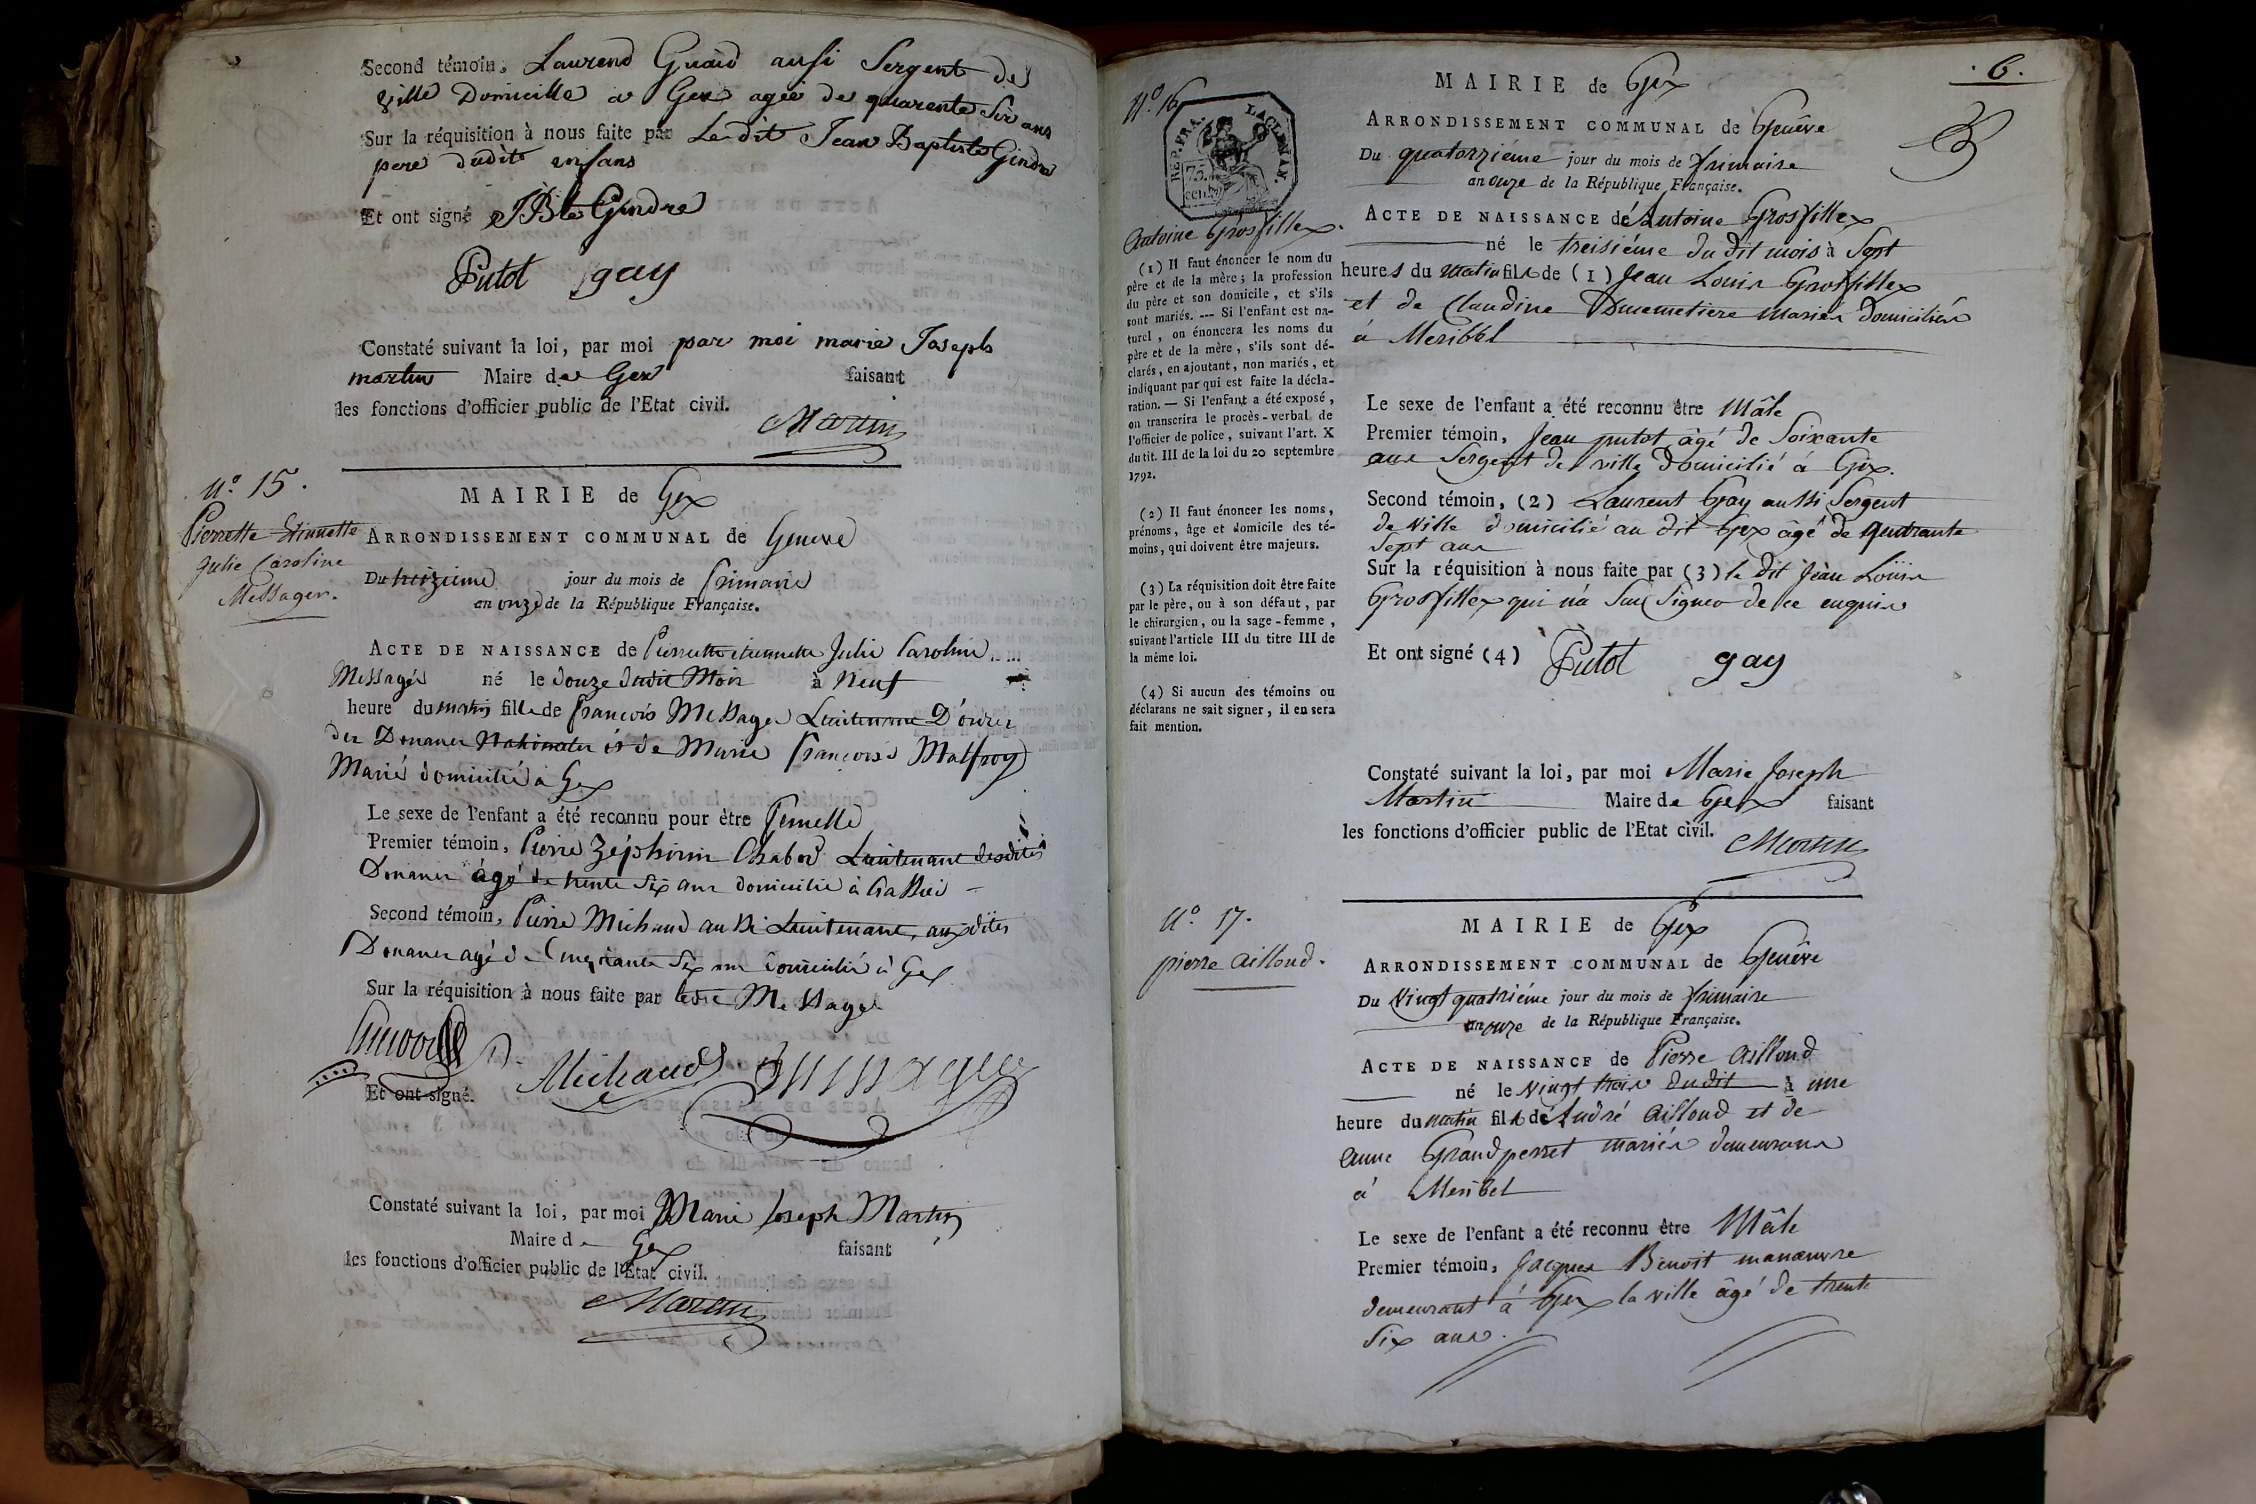 Second témoin, Laurend Guaid ausi Sergent de
ville Domicille a Gex agée de quarente Six ans
Sur la réquisition à nous faite par Le dit Jean Baptiste Gindre
pere dudit enfans
Et ont signé JBte Gindre
Putot gay
Constaté suivant la loi, par moi par moi marie Joseph
martin Maire de Gex faisant
les fonctions d'officier public de l'Etat civil.
Martin
N.º 15.
Pierrette Etiennette
Julie Caroline
Messager.
MAIRIE de Gex
ARRONDISSEMENT COMMUNAL de Geneve
Du treizieme jour du mois de frimaire
an onze de la République Française.
ACTE DE NAISSANCE de Pierrette etiennette Julie Caroline
Messager né le douze dudit Mois à Neuf
heure du matin fille de François Messager Lieutenant D'ordre
des Douanes Nationales et de Marie François Malfroy
Marié domicilié à Gex
Le sexe de l'enfant a été reconnu pour être femelle
Premier témoin, Pierre Zéphirin Chabod Lieutenant desdites
Douanes âgé de trente Six ans domicilié à
Second témoin, Pierre Michaud aussi Lieutenant auxdites
Douanes agé de Cinquante Six ans domicilié à Gex
Sur la réquisition à nous faite par ledit Messager
Michaud Messager
Et ont signé.
Constaté suivant la loi, par moi Marie Joseph Martin
Maire de Gex faisant
les fonctions d'officier public de l'Etat civil.
Martin
6.
N.º 16
REP. FRA.
75.
cent.
Antoine Grosfillex.
(1) Il faut énoncer le nom du
père et de la mère; la profession
du père et son domicile, et s'ils
sont mariés. --- Si l'enfant est na-
turel, on énoncera les noms du
père et de la mère, s'ils sont dé-
clarés, en ajoutant, non mariés, et
indiquant par qui est faite la décla-
ration. — Si l'enfant a été exposé,
on transcrira le procès-verbal de
l'officier de police, suivant l'art. X
du tit. III de la loi du 20 septembre
1792.
(2) Il faut énoncer les noms,
prénoms, âge et domicile des té-
moins, qui doivent être majeurs.
(3) La réquisition doit être faite
par le père, ou à son défaut, par
le chirurgien, ou la sage-femme,
suivant l'article III du titre III de
la même loi.
(4) Si aucun des témoins ou
déclarans ne sait signer, il en sera
fait mention.
MAIRIE de Gex
ARRONDISSEMENT COMMUNAL de Genêve
Du quatorziéme jour du mois de frimaire
an onze de la République Française.
ACTE DE NAISSANCE de Antoine Grosfillex
né le treisiéme du dit mois à Sept
heures du matin fils de (1) Jean Louis Grosfillex
et de Claudine Ducemetiere mariés domiciliés
à Meribbel
Le sexe de l'enfant a été reconnu être Mâle
Premier témoin, Jean putot âgé de Soixante
ans Sergent de ville domicilié à Gex.
Second témoin, (2) Laurent Gay aussi Sergent
de ville domicilié au dit Gex âgé de quarante
Sept ans
Sur la réquisition à nous faite par (3) le dit Jean Louis
Grosfillex qui n'a Sçu Signer de ce enquis
Et ont signé (4) Putot gay
Constaté suivant la loi, par moi Marie Joseph
Martin Maire de Gex faisant
les fonctions d'officier public de l'Etat civil.
Martin
N.º 17.
pierre Ailloud.
MAIRIE de Gex
ARRONDISSEMENT COMMUNAL de Genêve
Du Vingt quatriéme jour du mois de frimaire
an onze de la République Française.
ACTE DE NAISSANCE de Pierre Ailloud
né le vingt trois du dit à une
heure du matin fils de André Ailloud et de
Anne Grandperret mariés demeurans
à Meribel
Le sexe de l'enfant a été reconnu être Mâle
Premier témoin, Jacques Benoit manœuvre
demeurant à Gex la ville âgé de trente
six ans.